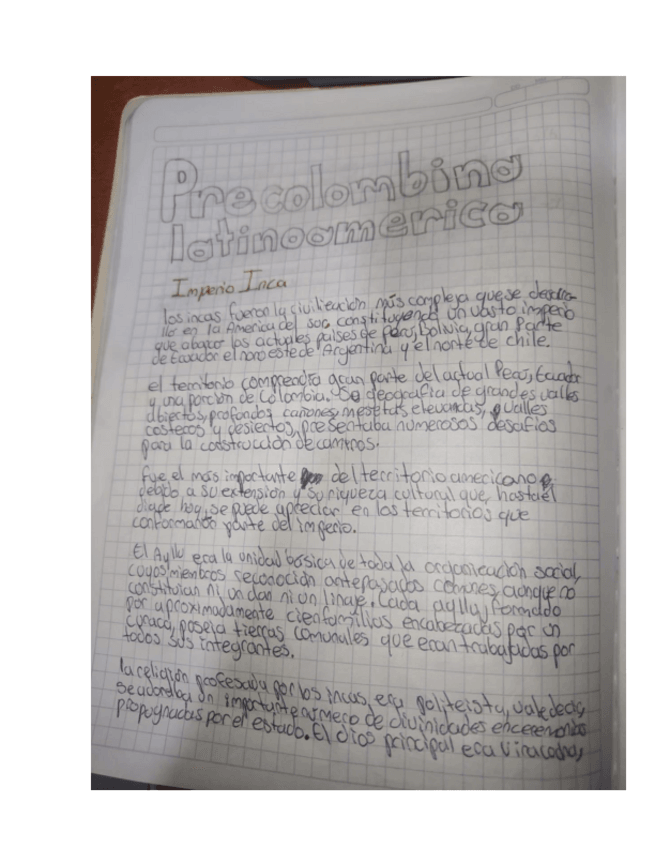 Precolombina
latinoamerica
Imperio Inca
los incas fueron la civilización más compleja que se desarro-
lló en la America del sur, constituyendo un vasto imperio
que abarco las actuales países de Perú, bolivia, gran parte
de Ecuador el noroeste de Argentina y el norte de chile.
el territorio comprendía gran parte del actual Perú, Ecuador
y una porción de Colombia. Su geografía de grandes valles
abiertos, profundos cañones, mesetas elevadas, valles
costeros y desiertos, presentaba numerosos desafíos
para la construcción de caminos.
fue el más importante del territorio americano
debido a su extensión y su riqueza cultural que, hasta el
día de hoy, se puede apreciar en los territorios que
conformando parte del imperio.
El Ayllu era la unidad básica de toda la organización social,
cuyos miembros reconocían antepasados comunes, aunque no
constituian ni un clan ni un linaje. Cada ayllu, formado
por aproximadamente cien familias encabezadas por un
curaca, poseía tierras comunales que eran trabajadas por
todos sus integrantes.
la religión profesada por los incas, era politeista, vale decir,
se adoraba un importante número de divinidades en ceremonias
propugnadas por el estado. El dios principal era Viracocha,